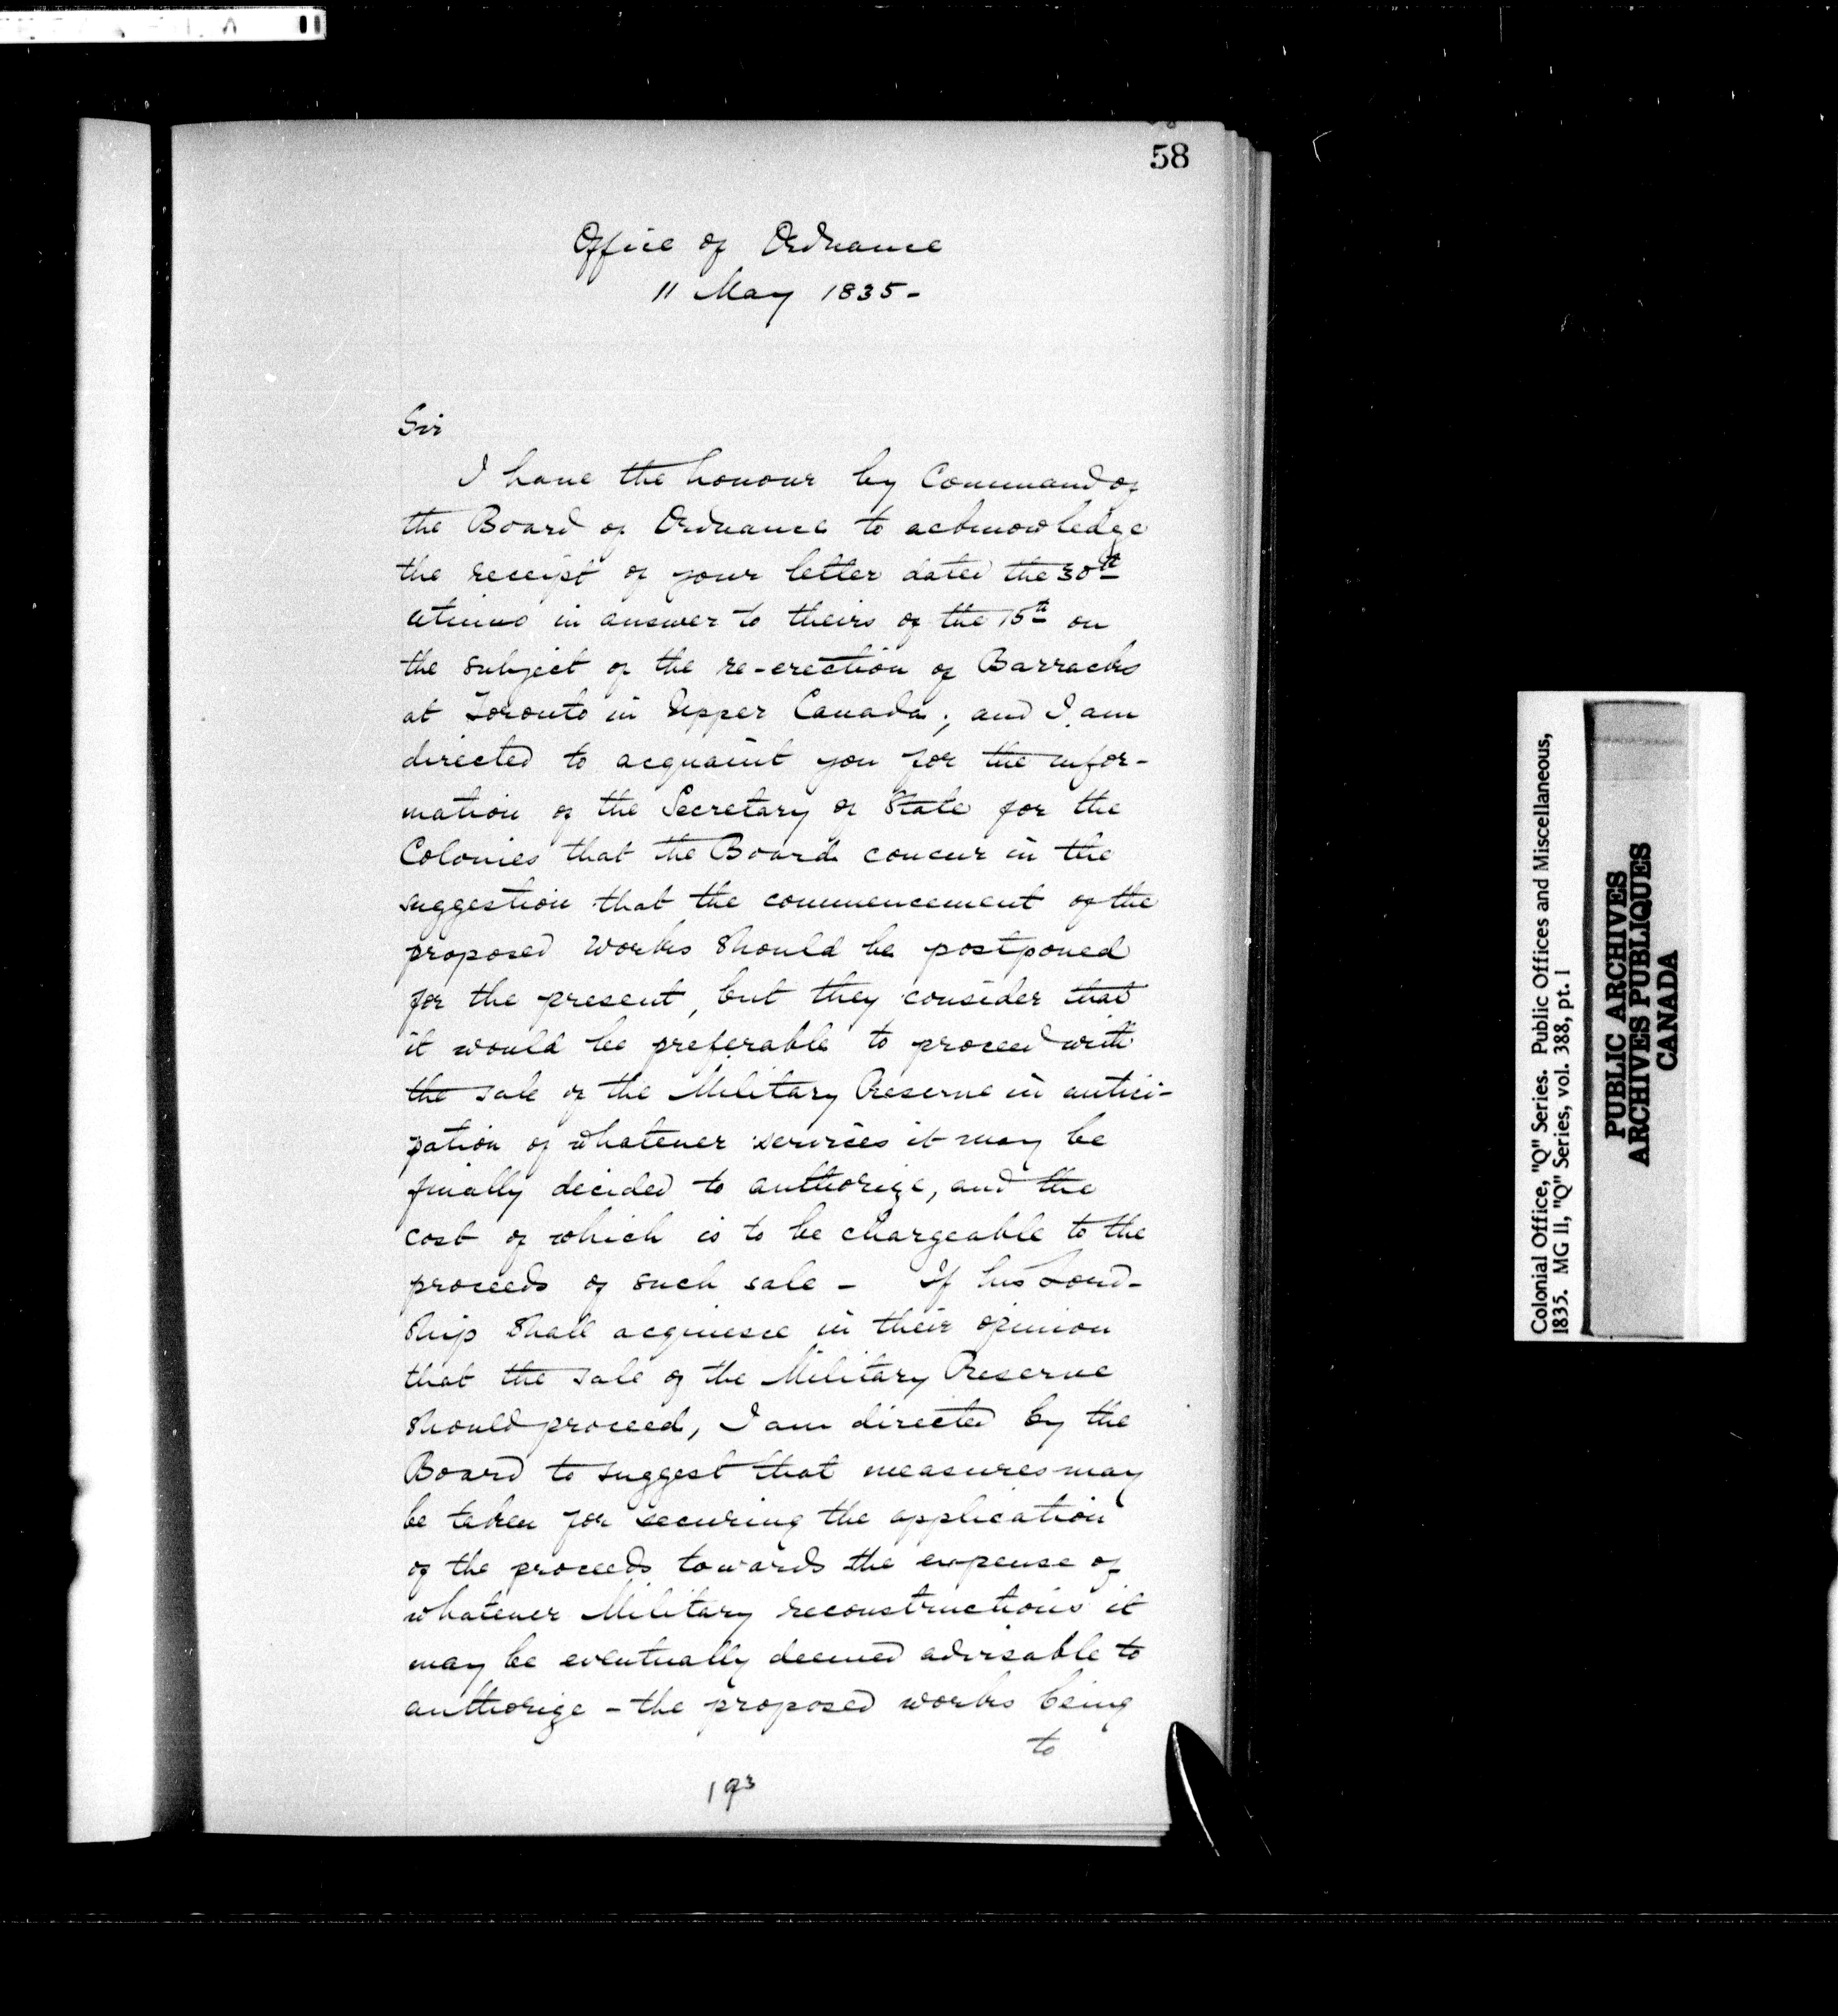 58
Office of Ordnance
11 May 1835-
Sir
I have the honour by Command of
the Board of Ordnance to acknowledge
the receipt of your letter dated the 30th
ultimo in answer to theirs of the 15th on
the subject of the re-erection of Barracks
at Toronto in Upper Canada; and I am
directed to acquaint you for the infor-
mation of the Secretary of State for the
Colonies that the Board concur in the
suggestion that the commencement of the
proposed works should be postponed
for the present, but they consider that
it would be preferable to proceed with
the sale of the Military Reserve in antici-
pation of whatever services it may be
finally decided to authorize, and the
cost of which is to be chargeable to the
proceeds of such sale - If his Lord-
ship shall acquiesce in their opinion
that the sale of the Military Reserve
should proceed, I am directed by the
Board to suggest that measures may
be taken for securing the application
of the proceeds towards the expense of
whatever Military reconstructions it
may be eventually deemed advisable to
authorize - the proposed works being
to
193
Colonial Office, "Q" Series. Public Offices and Miscellaneous,
1835. MG 11, "Q" Series, vol. 388, pt. 1
PUBLIC ARCHIVES
ARCHIVES PUBLIQUES
CANADA